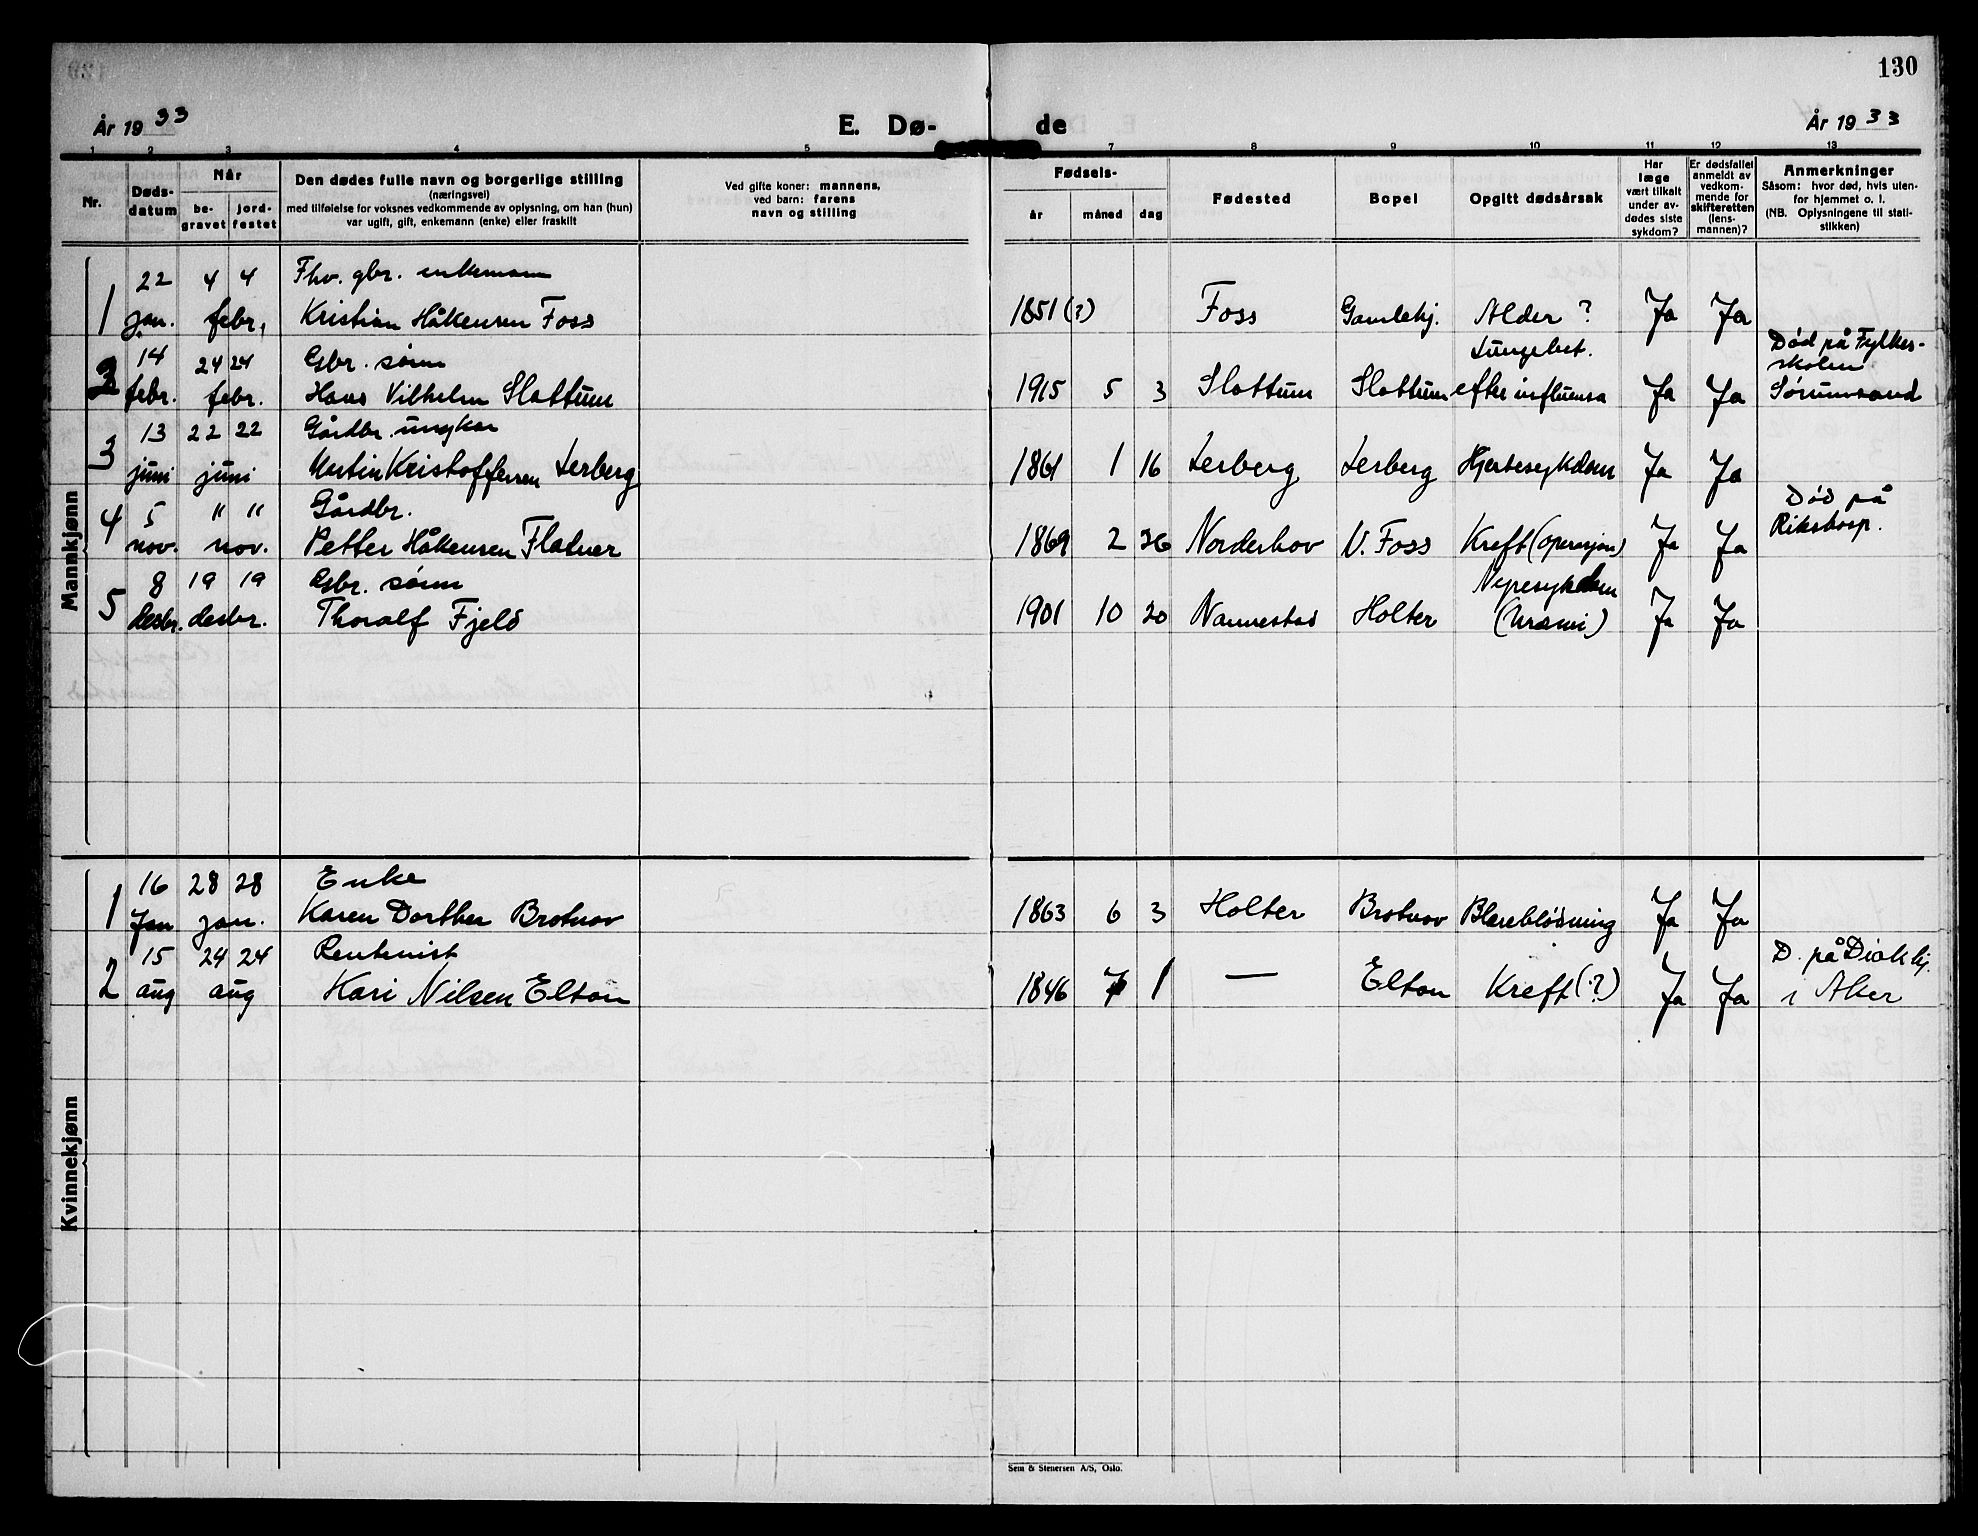 130
År 1933
E. Dø-
de
År 1933
1 2 3 4 5 7 8 9 10 11 12 13
Nr.
Døds-
datum
Når
be-
gravet
jord-
festet
Den dødes fulle navn og borgerlige stilling
(næringsvei)
med tilføielse for voksnes vedkommende av oplysning, om han (hun)
var ugift, gift, enkemann (enke) eller fraskilt
Ved gifte koner: mannens,
ved barn: farens
navn og stilling
Fødsels-
år
måned
dag
Fødested
Bopel
Opgitt dødsårsak
Har
læge
vært tilkalt
under av-
dødes siste
sykdom?
Er dødsfallet
anmeldt av
vedkom-
mende for
skifteretten
(lens-
mannen)?
Anmerkninger
Såsom: hvor død, hvis uten-
for hjemmet o. l.
(NB. Oplysningene til stati-
stikken)
Mannkjønn
22 4 4 Fhv. gbr. enkemann
1 jan. febr. Kristian Håkensen Foss 1851 (?) Foss Gamlehj. Alder ? Ja Ja
14 24 24 Gbr. sønn Lungebet. Død på Fylkes-
skolen
2 febr. febr. Hans Vilhelm Slattum 1915 5 3 Slattum Slattum efter influensa Ja Ja Sørumsand
13 22 22 Gårdbr. ungkar
3 juni juni Martin Kristoffersen Lerberg 1861 1 16 Lerberg Lerberg Hjertesykdom Ja Ja
4 5 11 11 Gårdbr. Død på
nov. nov. Petter Håkensen Flatner 1869 2 26 Norderhov V. Foss Kreft (operasjon) Ja Ja Rikshosp.
8 19 19 Gbr. sønn Nyresykdom
5 desbr. desbr. Thoralf Fjeld 1901 10 20 Nannestad Holter (Uræmi) Ja Ja
Kvinnekjønn
16 28 28 Enke
1 Jan jan. Karen Dorthea Brotnov 1863 6 3 Holter Brotnov Blæreblødning Ja Ja
15 24 24 Rentenist D. på Diakhj.
2 aug aug Kari Nilsen Elton 1846 7 1 — Elton Kreft (?) Ja Ja i Aker
Sem & Stenersen A/S, Oslo.